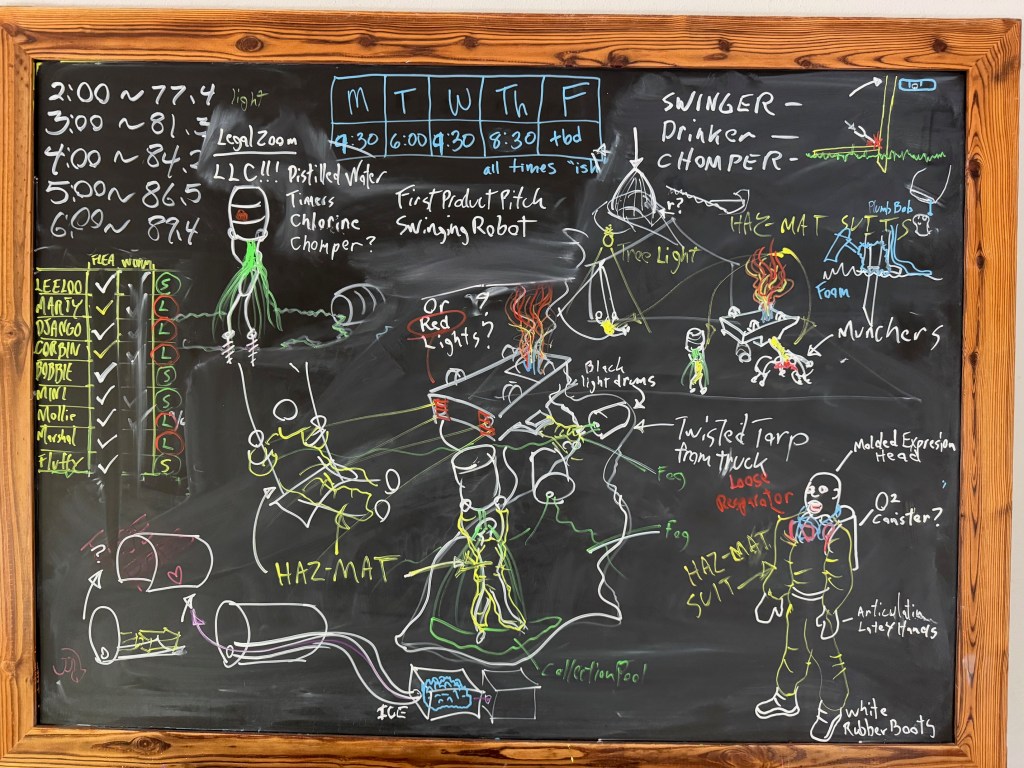 2:00 ~ 77.4
3:00 ~ 81.3
4:00 ~ 84.2
5:00 ~ 86.5
6:00 ~ 89.4
light
Legal Zoom
LLC!!! Distilled Water
Timers
Chlorine
Chomper?
M T W Th F
9:30 6:00 9:30 8:30 +bd
all times "ish"
First Product Pitch
Swinging Robot
SWINGER -
Drinker -
CHOMPER -
Plumb Bob
HAZ-MAT SUITS
Tree Light
Foam
Munchers
FLEA WORM
LEELOO S
MARTY L
DJANGO L
CORBIN L
BOBBIE S
MINI S
Mollie L
Marshal L
Fluffy S
Or
Red
Lights?
Black
light drums
Twisted Tarp
from truck
Loose
Resparator
Fog
Fog
HAZ-MAT
Collection Pool
?
ICE
Molded Expresion
Head
O2
Canister?
HAZ-MAT
SUIT
Latex Hands
White
Rubber Boots